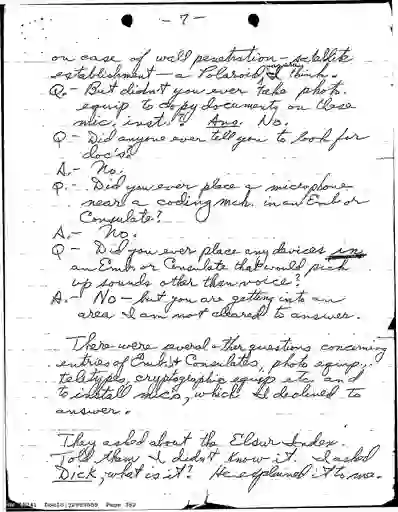 - 7 -
on case of wall penetration - satellite
establishment - a Polaroid camera I think.
Q. - But didn't you ever take photo.
equip to copy documents on these
mic. inst.? Ans. No.
Q - Did anyone ever tell you to look for
doc's?
A. - No.
Q. - Did you ever place a microphone
near a coding mch. in an Emb or
Consulate?
A. - No.
Q - Did you ever place any devices in
an Emb. or Consulate that would pick
up sounds other than voice?
A. - No - but you are getting into an
area I am not cleared to answer.
There were several other questions concerning
entries of Emb. & Consulates, photo equip.,
teletypes, cryptographic equip etc and
to install mics, which I declined to
answer.
They asked about the Elsur Index.
Told them I didn't know it. I asked
Dick, what is it? He explained it to me.
DocId: Page 382